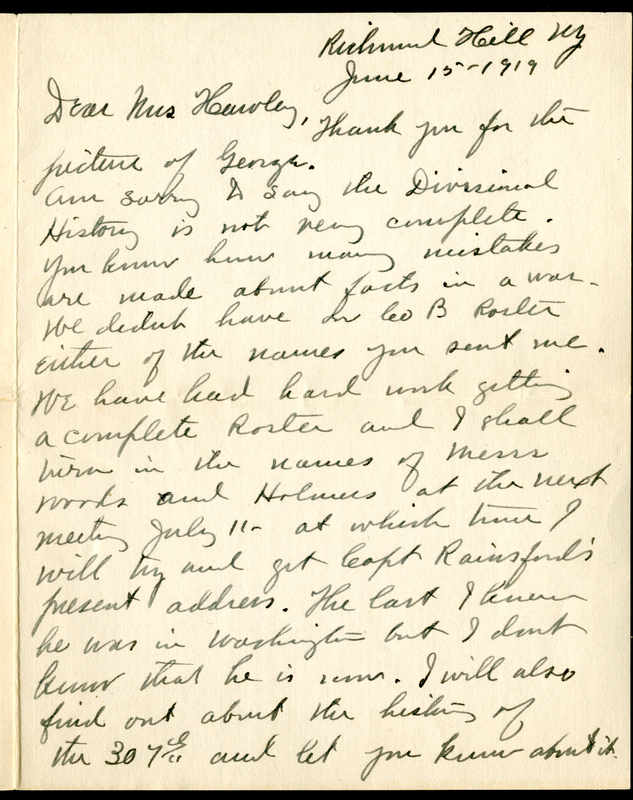 Richmond Hill NY
June 15-1919
Dear Mrs Hawley,
Thank you for the
picture of George.
Am sorry to say the Divisional
History is not very complete.
You know how many mistakes
are made about facts in a war.
We didnt have on Co B Roster
either of the names you sent me.
We have had hard work getting
a complete Roster and I shall
turn in the names of Messrs
Woods and Holmes at the next
meeting July 11- at which time I
will try and get Capt Rainsford's
present address. The last I knew
he was in Washington but I dont
know that he is now. I will also
find out about the history of
the 307th and let you know about it.